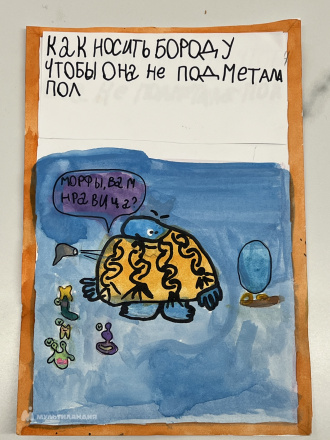 КаК НОСИТЬ БОРОДУ
ЧТОБЫ ОНа Не ПОДМеТАЛА
ПОЛ
МОРФЫ, ВАМ
НРАВИЦА?
МУЛЬТЛАНДИЯ